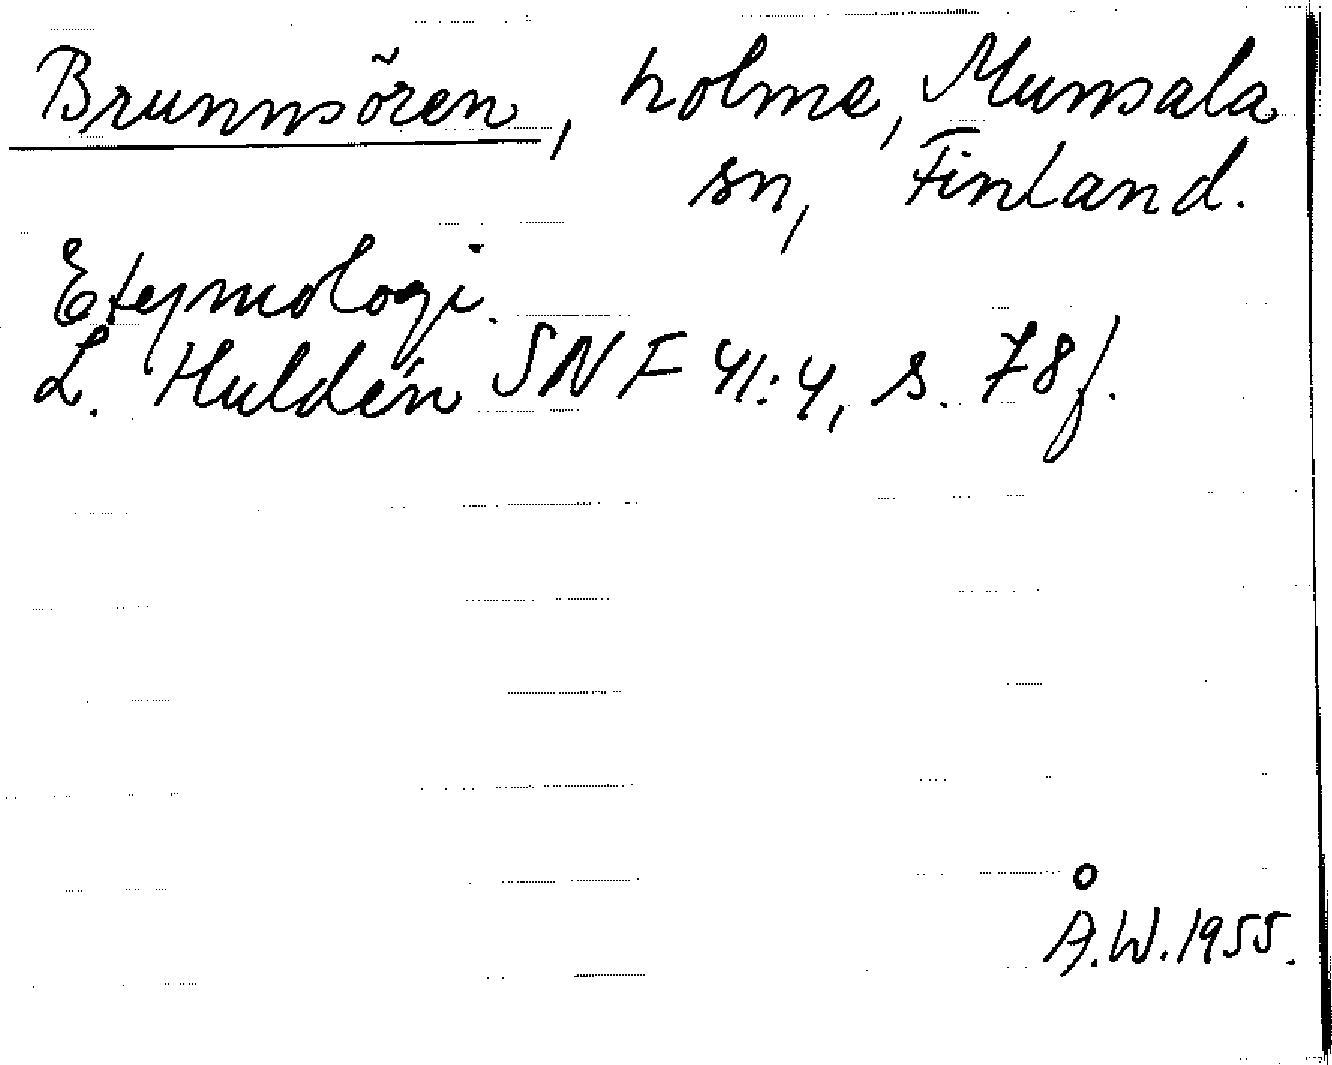 Brunnsören, holme, Munsala
sn, Finland.
Etymologi.
L. Huldén SNF 41:4, s. 78 f.
Å.W. 1955.